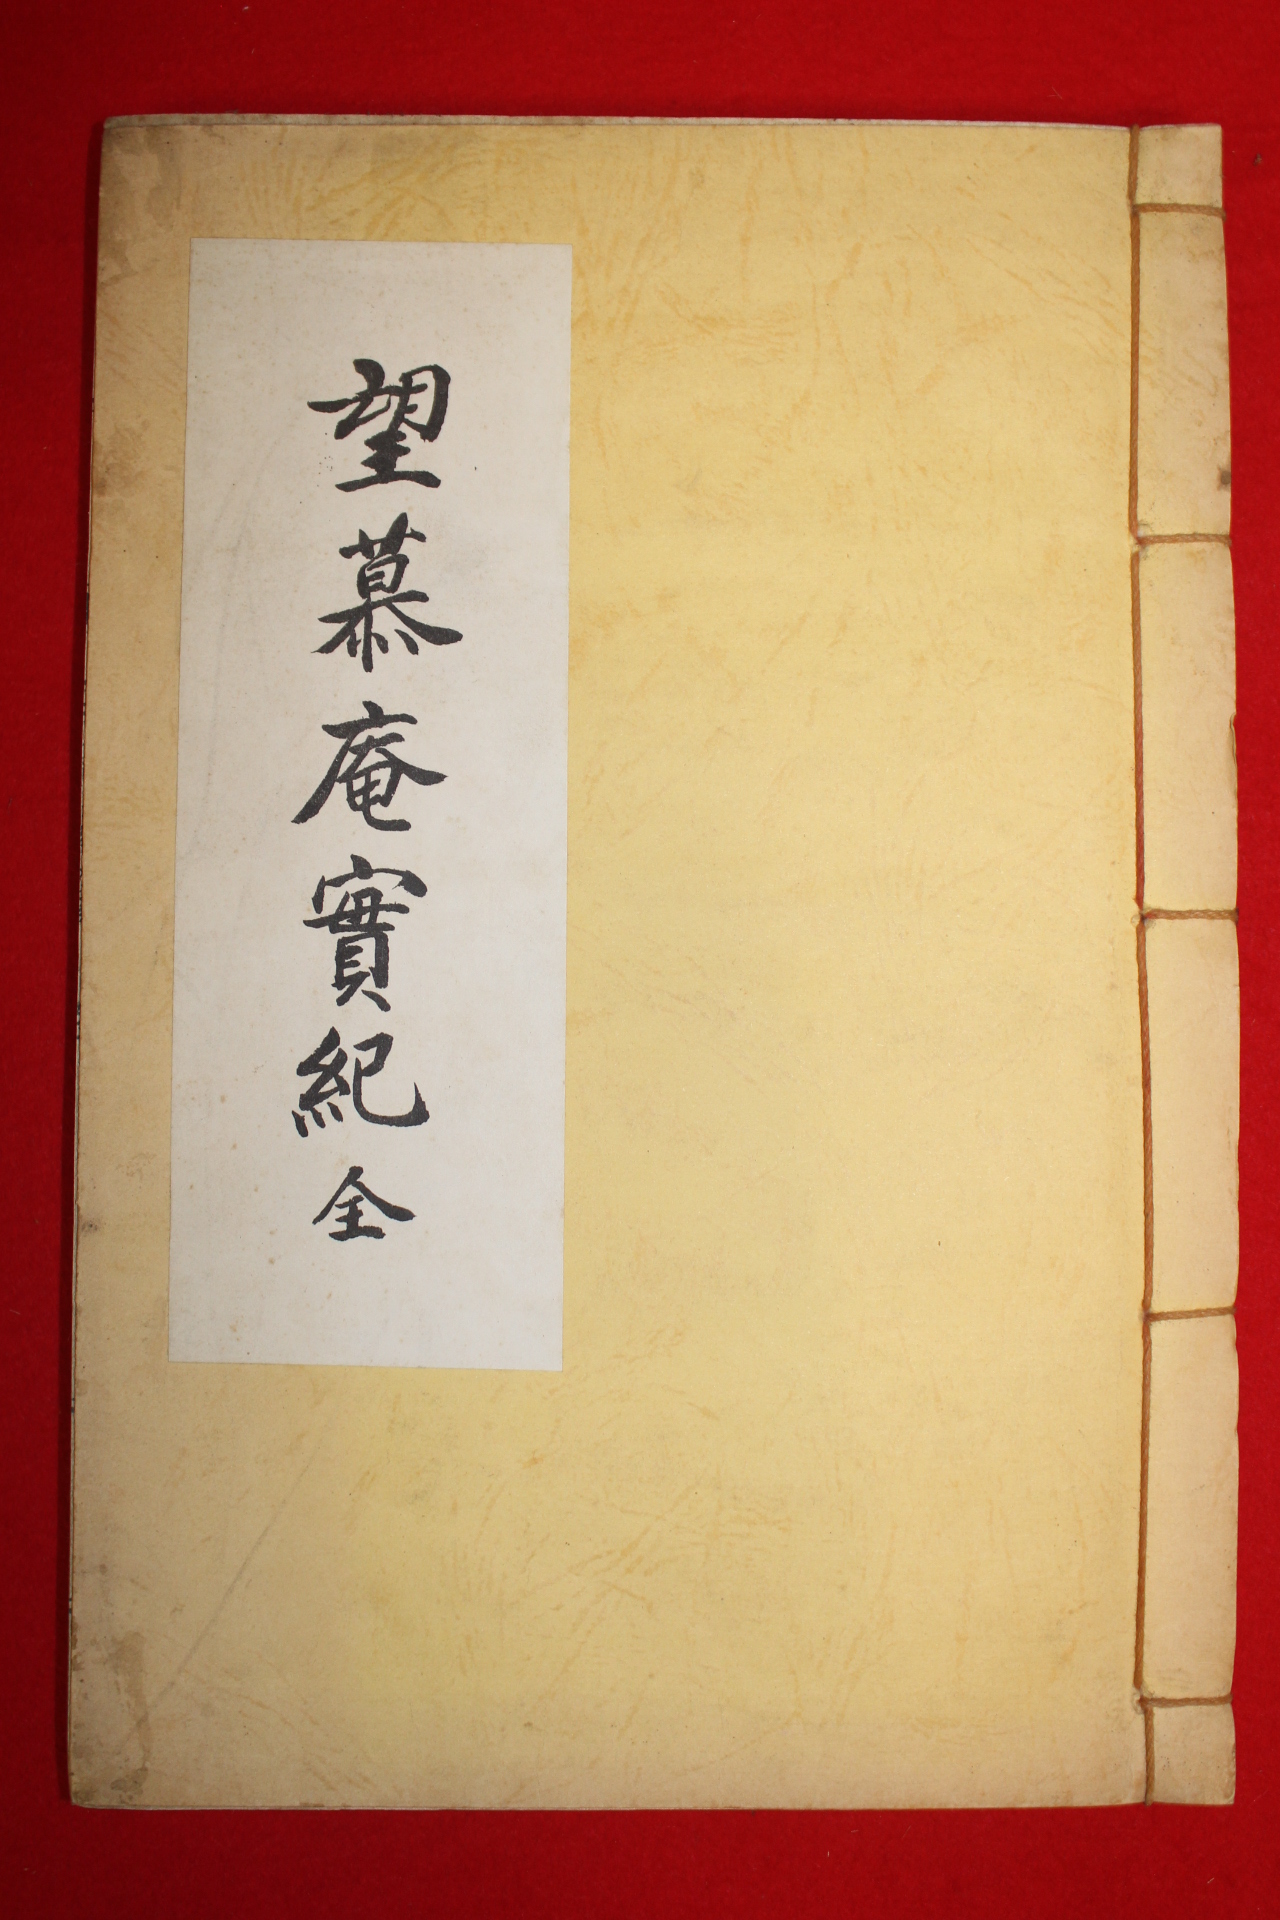 望慕庵實紀 全